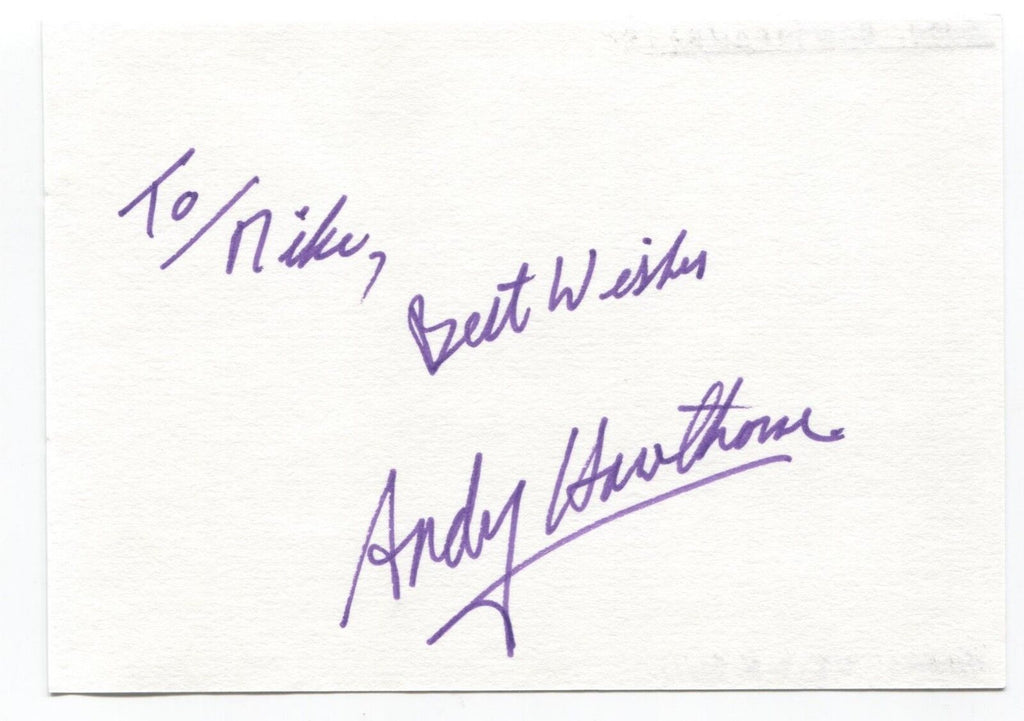 To/Mike,
Best Wishes
Andy Hawthorne